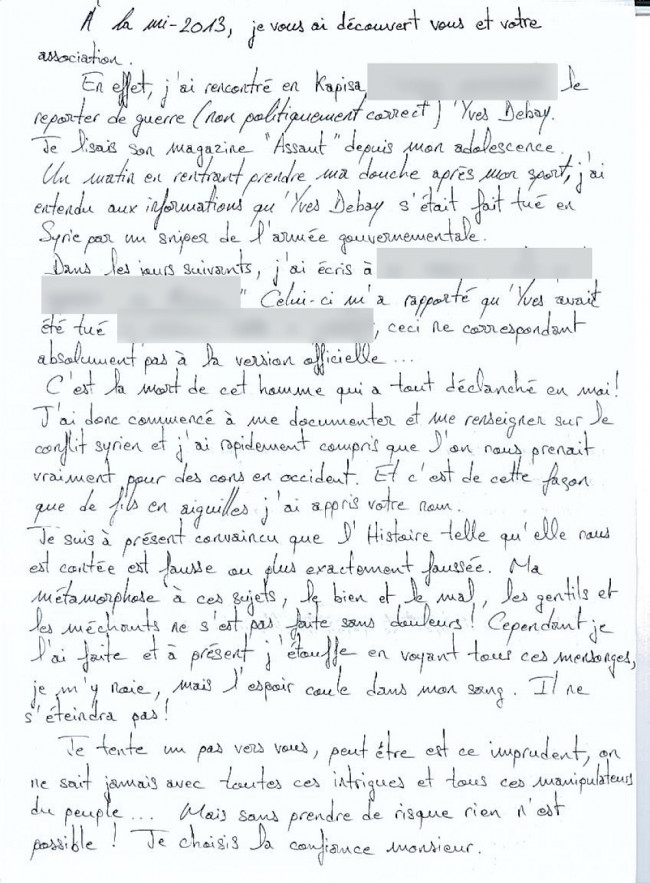 À la mi-2013, je vous ai découvert vous et votre
association.
En effet, j'ai rencontré en Kapisa le
reporter de guerre (non politiquement correct) Yves Debay.
Je lisais son magazine "Assaut" depuis mon adolescence.
Un matin en rentrant prendre ma douche après mon sport, j'ai
entendu aux informations qu'Yves Debay s'était fait tué en
Syrie par un sniper de l'armée gouvernementale.
Dans les jours suivants, j'ai écris à
" Celui-ci m'a rapporté qu'Yves avait
été tué , ceci ne correspondant
absolument pas à la version officielle ...
C'est la mort de cet homme qui a tout déclanché en moi!
J'ai donc commencé à me documenter et me renseigner sur le
conflit syrien et j'ai rapidement compris que l'on nous prenait
vraiment pour des cons en occident. Et c'est de cette façon
que de fils en aiguilles j'ai appris votre nom.
Je suis à présent convaincu que l'Histoire telle qu'elle nous
est contée est fausse ou plus exactement faussée. Ma
métamorphose à ces sujets, le bien et le mal, les gentils et
les méchants ne s'est pas faite sans douleurs! Cependant je
l'ai faite et à présent j'étouffe en voyant tous ces mensonges,
je m'y noie, mais l'espoir coule dans mon sang. Il ne
s'éteindra pas!
Je tente un pas vers vous, peut être est ce imprudent, on
ne sait jamais avec toutes ces intrigues et tous ces manipulateurs
du peuple ... Mais sans prendre de risque rien n'est
possible! Je choisis la confiance monsieur.